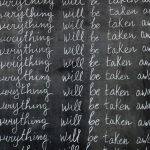 everything will be taken aw
everything will be taken aw
everything will be taken aw
everything will be taken aw
everything will be taken aw
everything will be taken aw
everything will be taken aw
everything will be taken awa
everything will be taken awa
everything will be taken awa